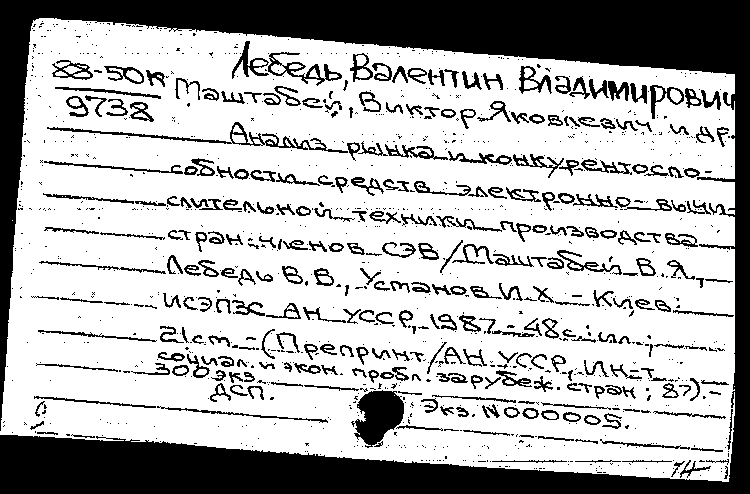 Лебедь, Валентин Владимирович
88-50К
9738
Маштабей, Виктор Яковлевич и др.
Анализ рынка и конкурентоспо-
собности средств электронно-вычи-
слительной техники производства
стран-членов СЭВ/Маштабей В.Я.,
Лебедь В.В., Установ И.Х. - Киев:
ИСЭПЗС АН УССР, 1987.-48с.: ил.;
21см. - (Препринт/АН УССР, Ин-т
социал. и экон. пробл. зарубеж. стран; 87).-
300 экз.
ДСП.
Экз. N000005.